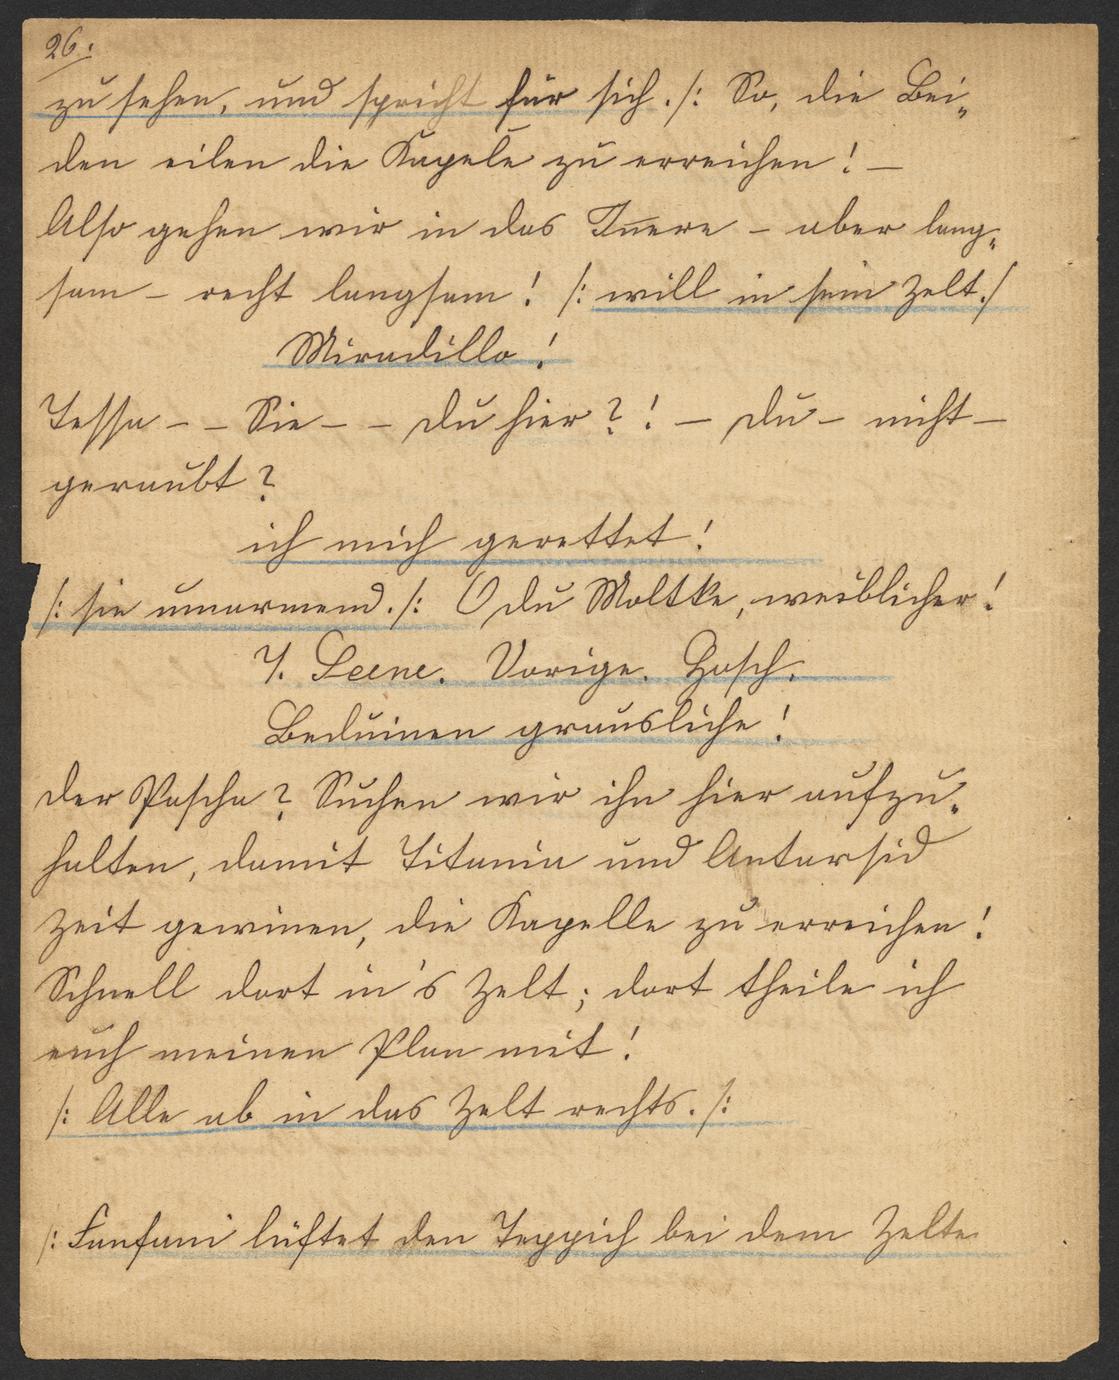 26.
zu sehen, und spricht für sich ./: So, die Bei„
den eilen die Kapelle zu erreichen! —
Also gehen wir in das Iñere – aber lang„
sam – recht langsam! /: will in sein Zelt ./
Miradillo!
Tessa – – Sie – – du hier?! – du – nicht –
geraubt?
ich mich gerettet!
/: sie umarmend. /: O du Moltke, weiblicher!
7. Scene. Vorige. Hosch.
Beduinen grausliche!
der Pascha? Suchen wir ihn hier aufzu„
halten, damit Titania und Antarsid
Zeit gewinen, die Kapelle zu erreichen!
Schnell dort in's Zelt; dort theile ich
euch meinen Plan mit!
/: Alle ab in das Zelt rechts. /:
/: Fanfani lüftet den Teppich bei dem Zelte